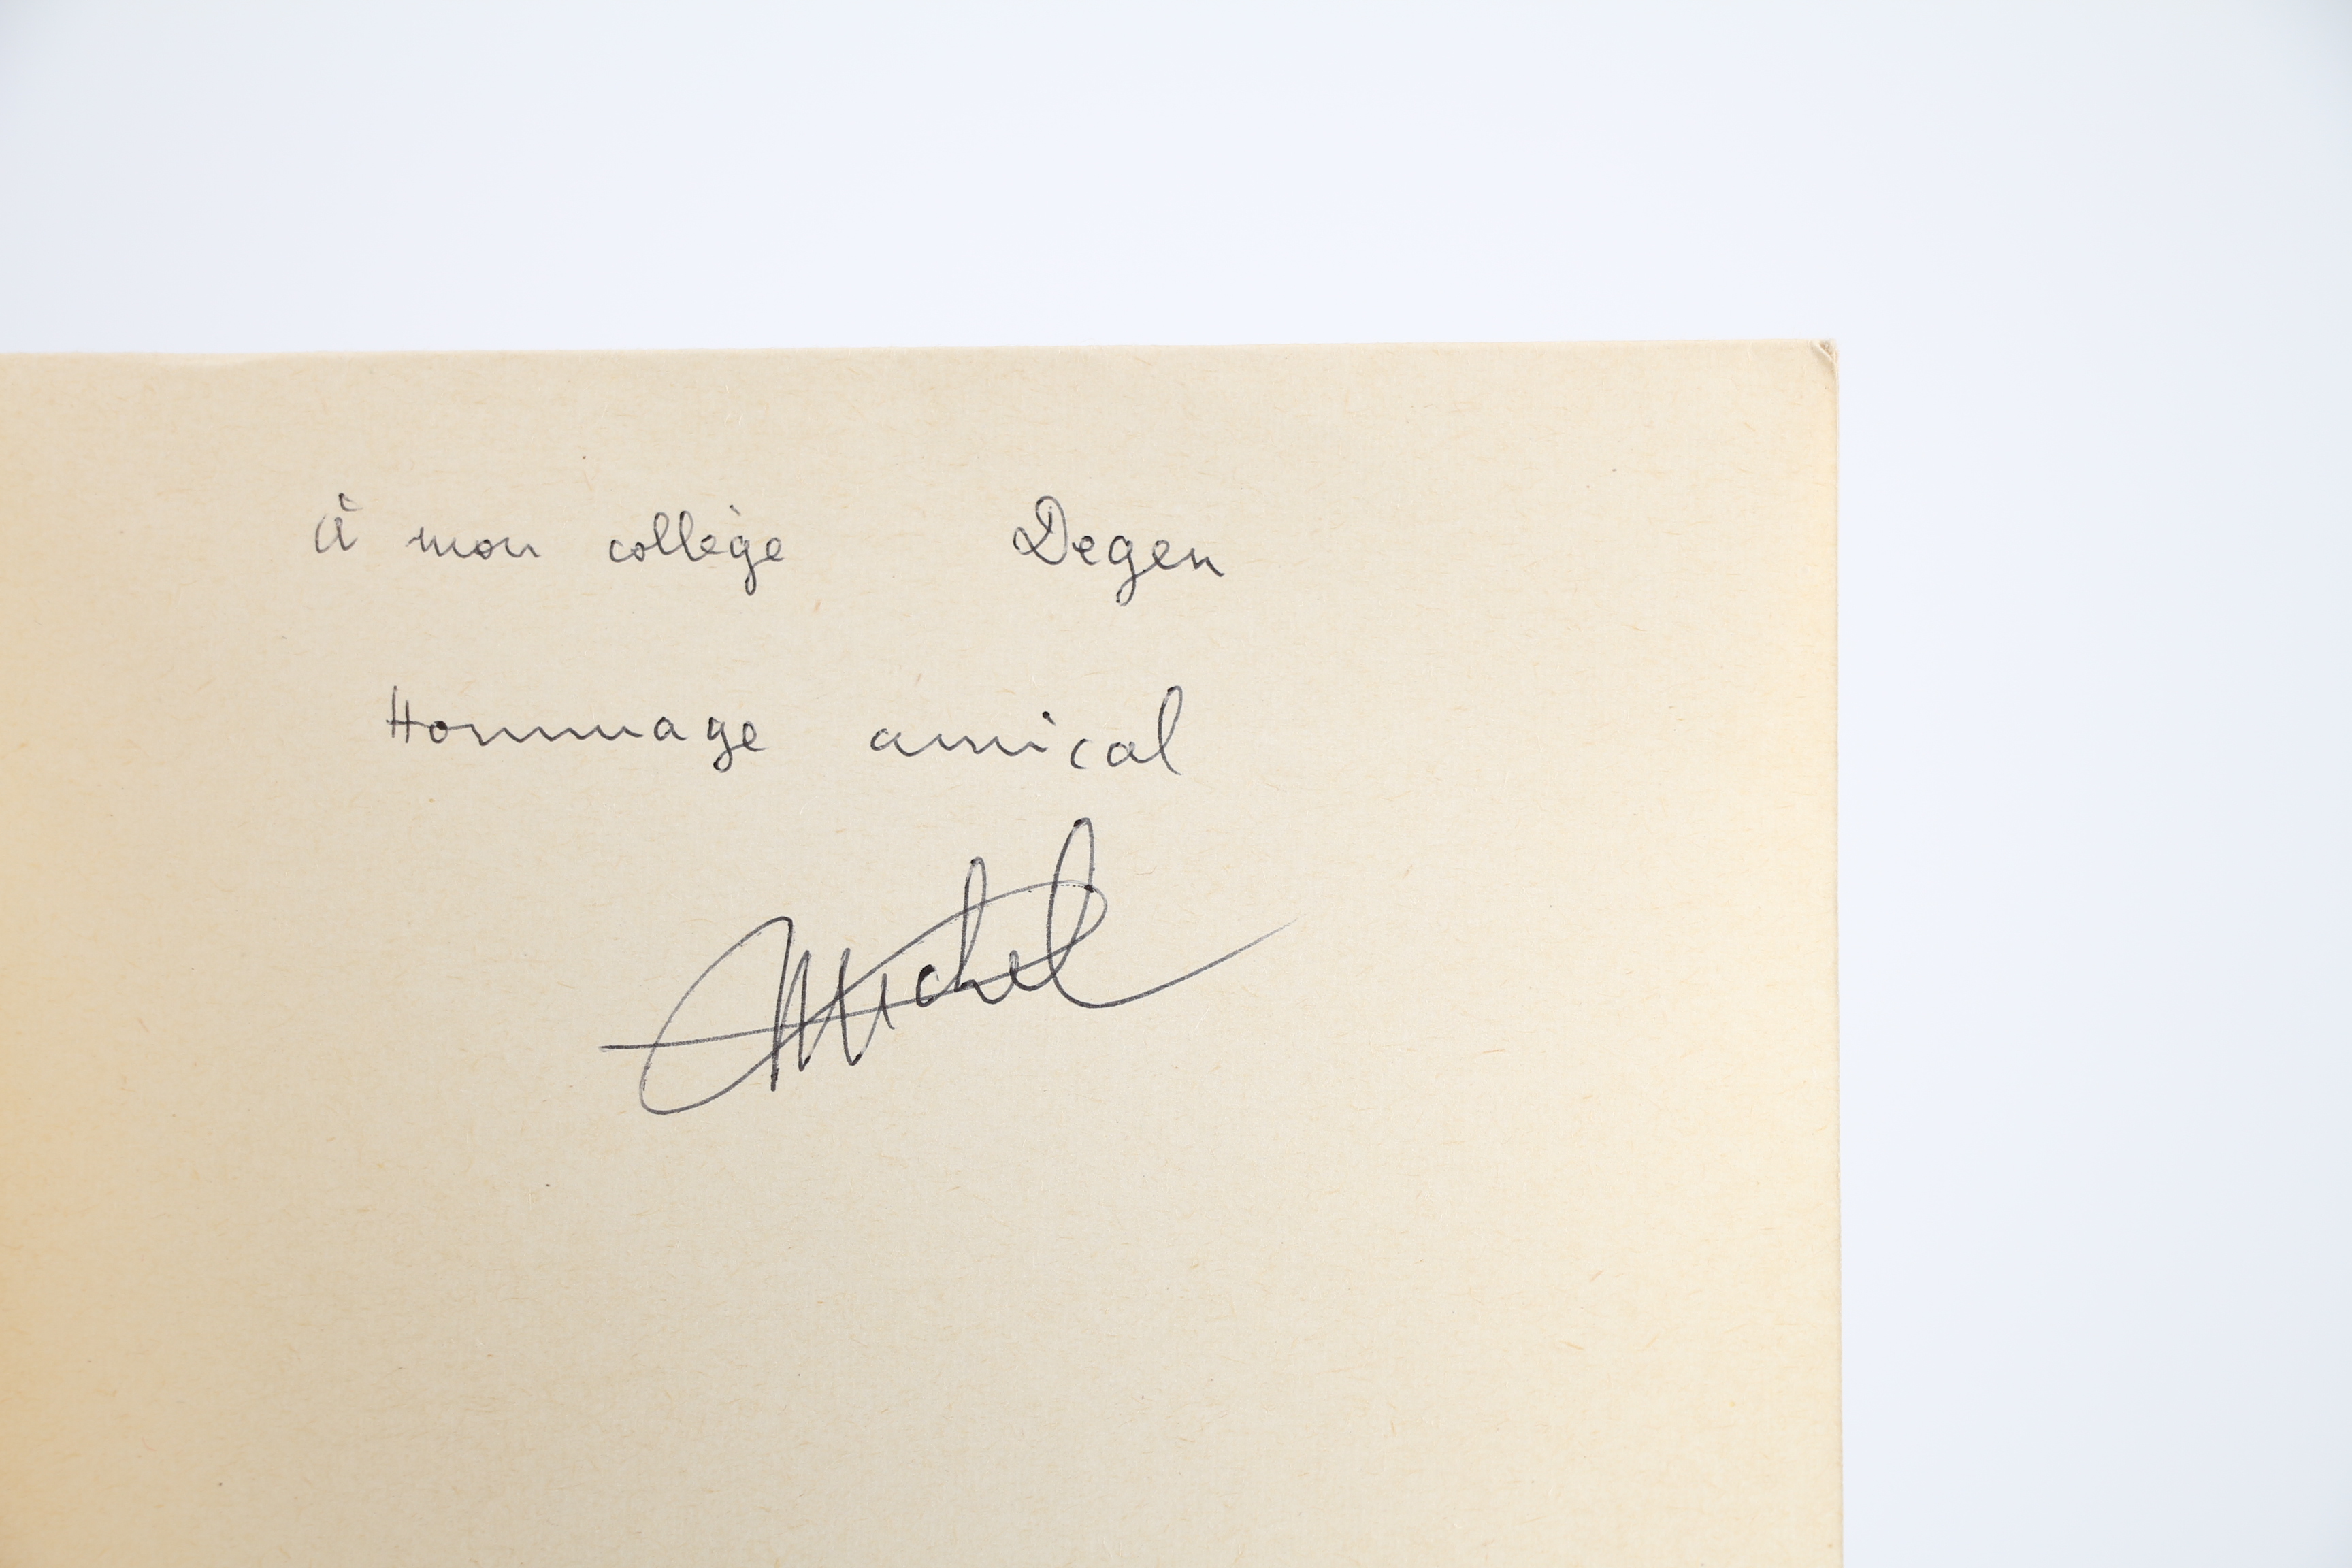 À mon collège Degen
Hommage amical
Michel